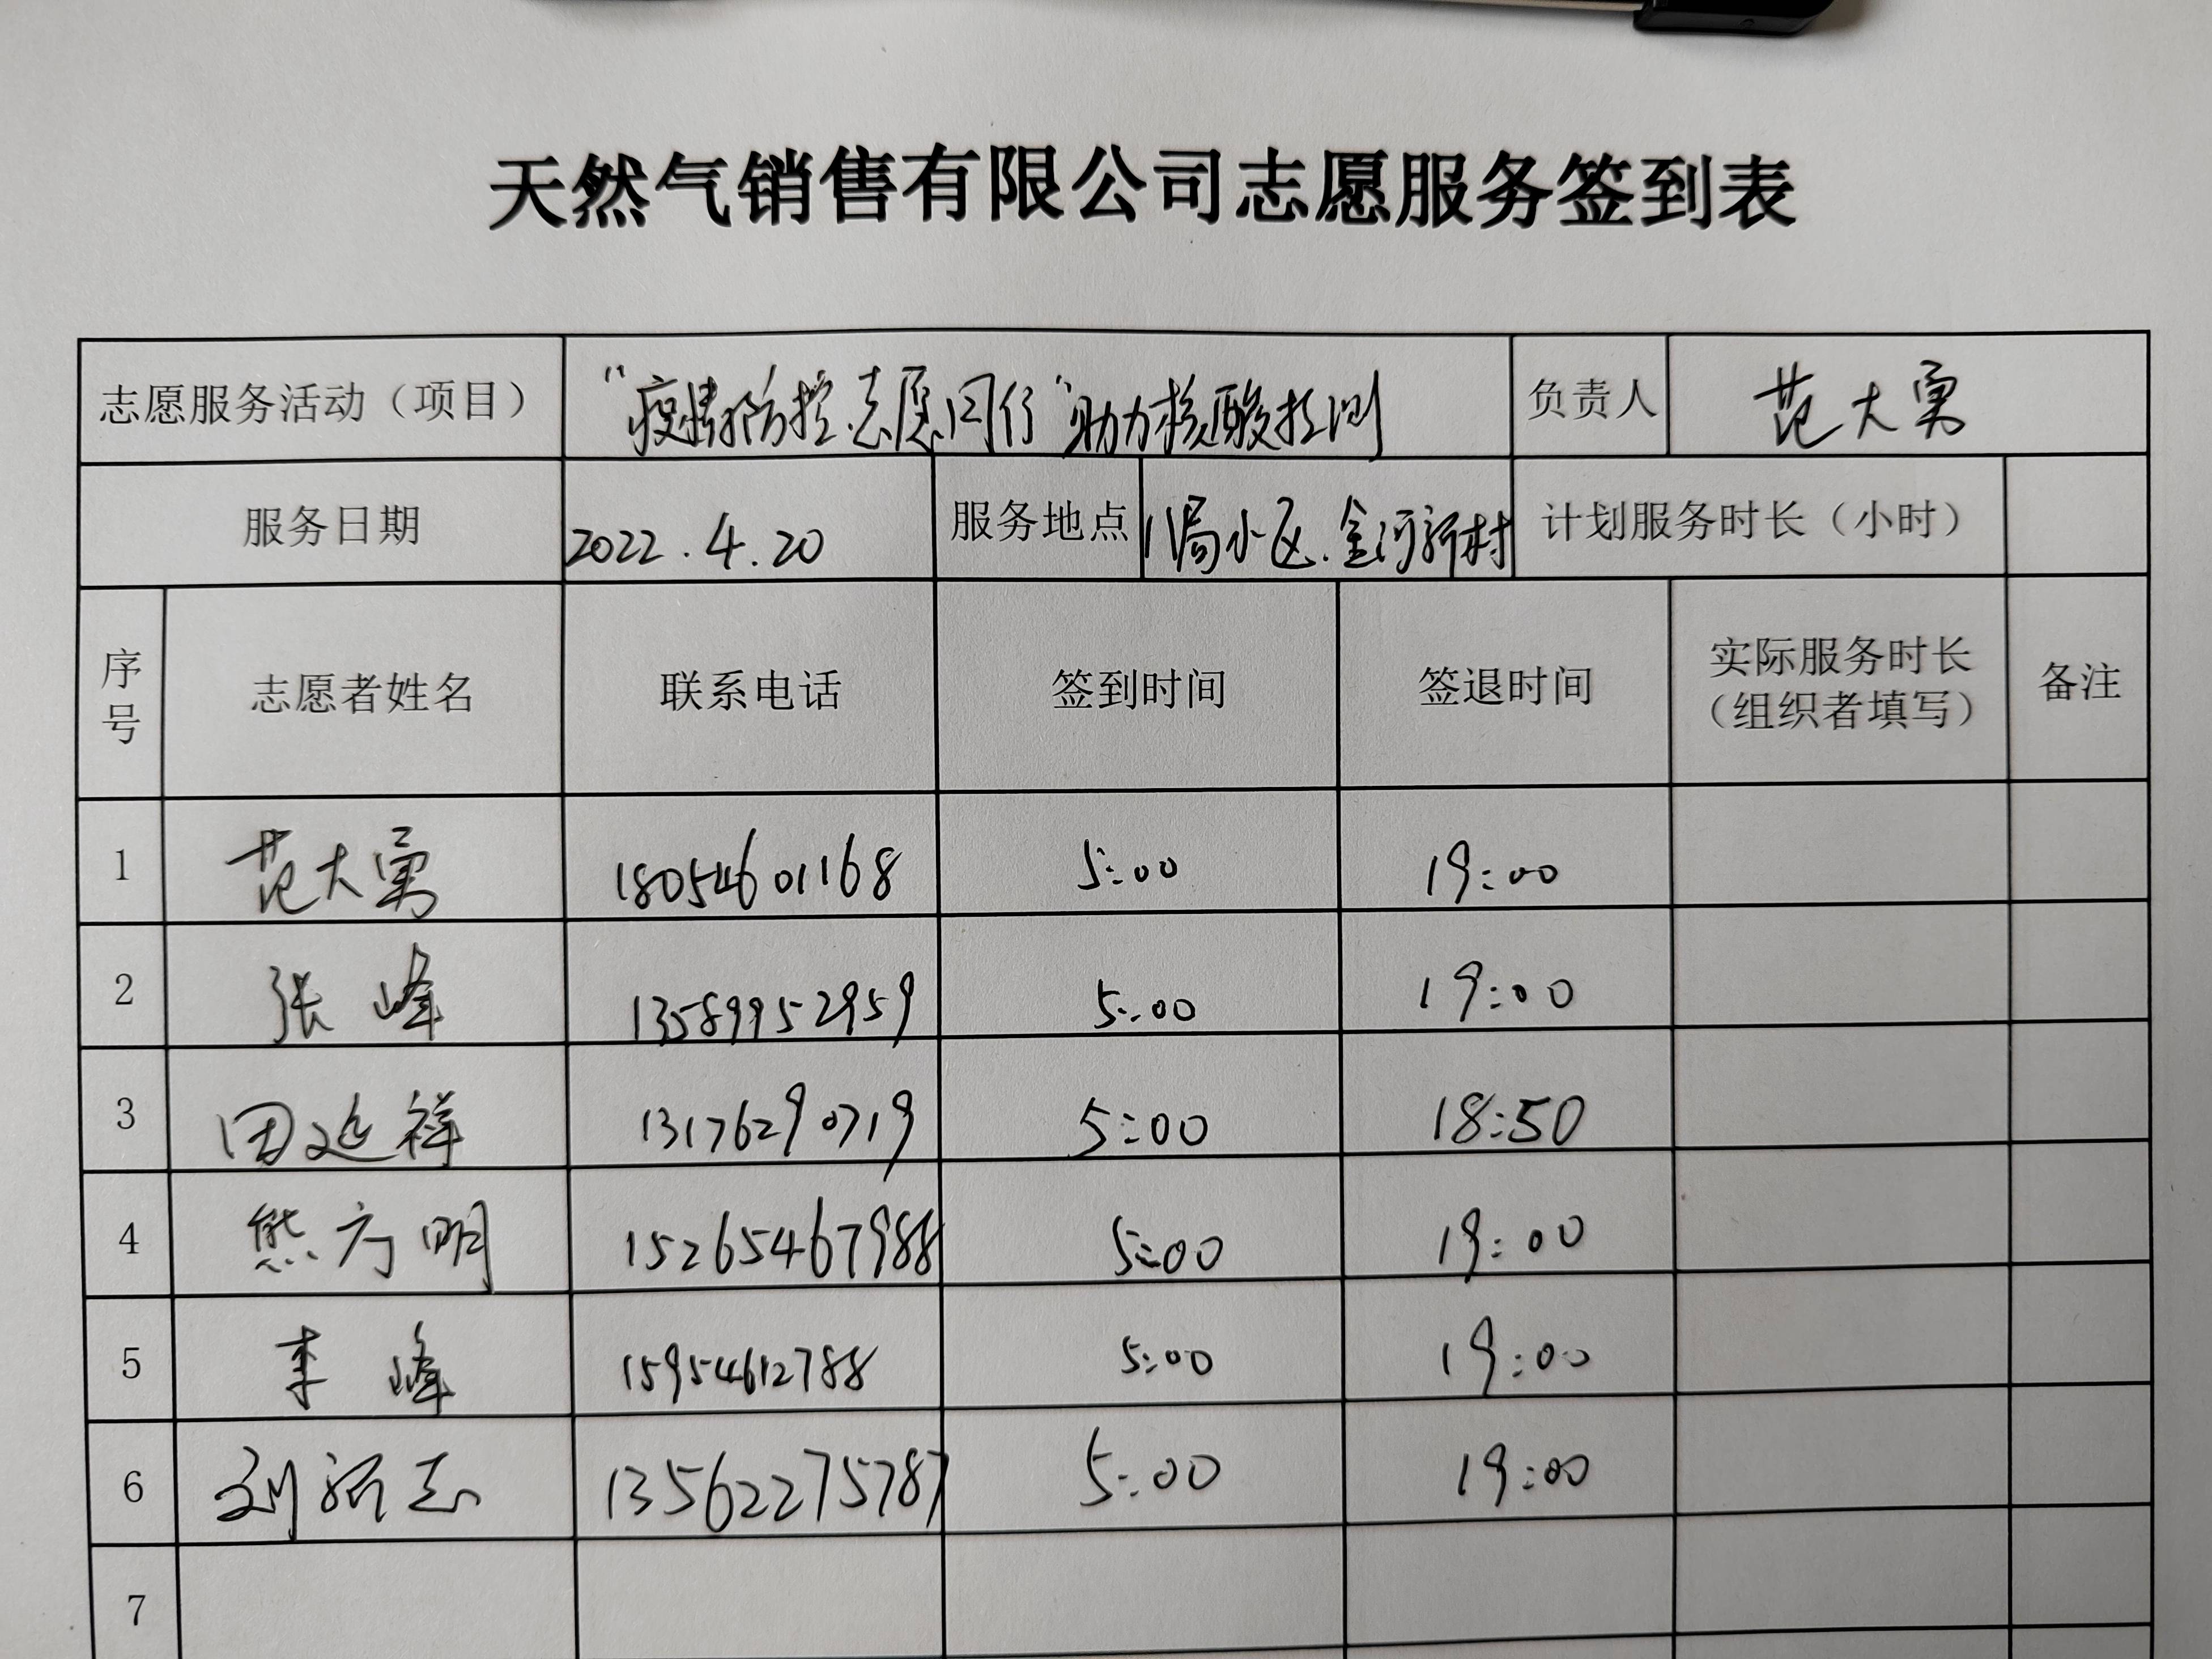 天然气销售有限公司志愿服务签到表
志愿服务活动（项目） “疫情防控.志愿同行”助力核酸检测 负责人 范大勇
服务日期 2022.4.20 服务地点 局小区.金河新村 计划服务时长（小时）
序号 志愿者姓名 联系电话 签到时间 签退时间 实际服务时长（组织者填写） 备注
1 范大勇 18054601168 5:00 19:00
2 张峰 13589952959 5:00 19:00
3 田延祥 13176290719 5:00 18:50
4 熊方明 15265467988 5:00 19:00
5 李峰 15954612788 5:00 19:00
6 刘新志 13562275787 5:00 19:00
7